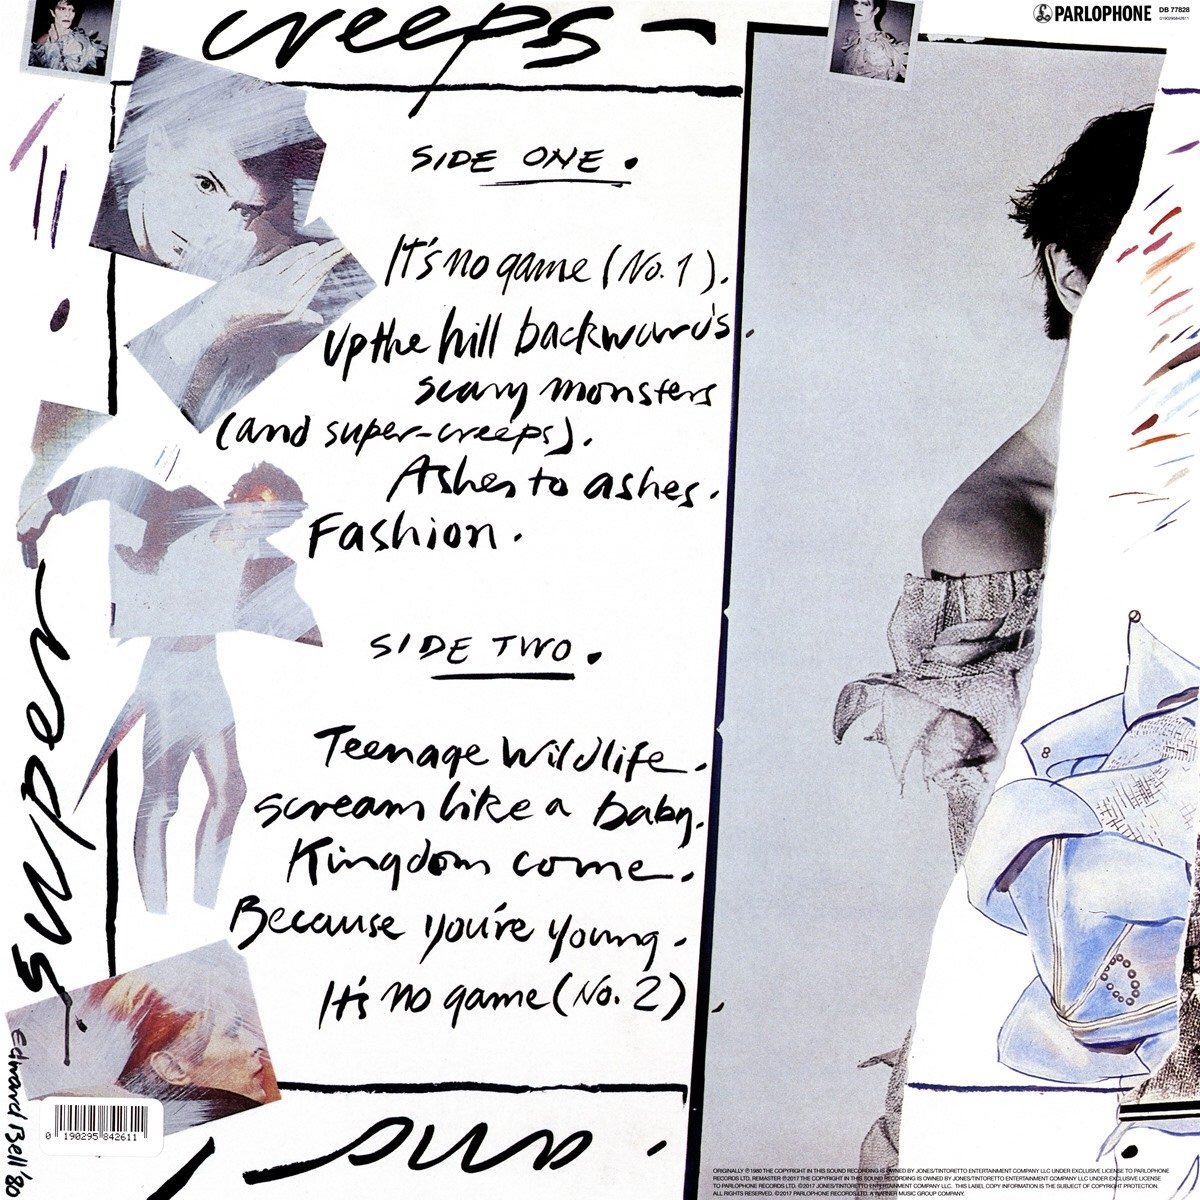 creeps —
PARLOPHONE
DB 77828
0190295842611
SIDE ONE.
It's no game (No. 1).
Up the hill backwards.
scary monsters
(and super-creeps).
Ashes to ashes.
Fashion.
SIDE TWO.
Teenage Wildlife.
scream like a baby.
Kingdom come.
Because you're young.
It's no game (No. 2).
super
Edward Bell '80
0 190295 842611
ORIGINALLY ℗ 1980 THE COPYRIGHT IN THIS SOUND RECORDING IS OWNED BY JONES/TINTORETTO ENTERTAINMENT COMPANY LLC UNDER EXCLUSIVE LICENSE TO PARLOPHONE
RECORDS LTD, REMASTER ℗ 2017 THE COPYRIGHT IN THIS SOUND RECORDING IS OWNED BY JONES/TINTORETTO ENTERTAINMENT COMPANY LLC UNDER EXCLUSIVE LICENSE
TO PARLOPHONE RECORDS LTD. ©2017 JONES/TINTORETTO ENTERTAINMENT COMPANY LLC. THIS LABEL COPY INFORMATION IS THE SUBJECT OF COPYRIGHT PROTECTION.
ALL RIGHTS RESERVED. ©2017 PARLOPHONE RECORDS LTD, A WARNER MUSIC GROUP COMPANY.